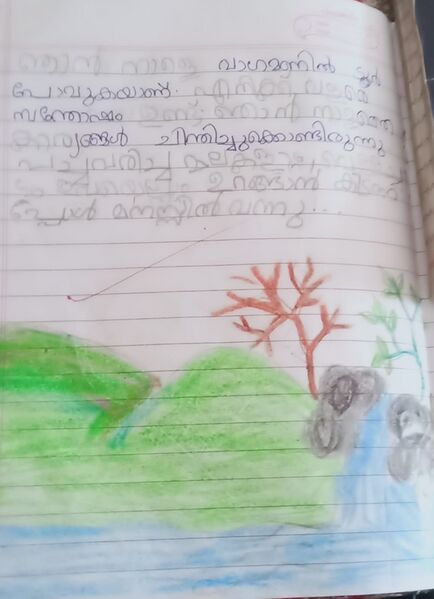 ഞാൻ നാളെ വാഗമണിൽ ടൂർ
പോവുകയാണ്. എനിക്ക് വളരെ
സന്തോഷം ഉണ്ട്. ഞാൻ നാളത്തെ
കാര്യങ്ങൾ ചിന്തിച്ചുക്കൊണ്ടിരുന്നു
പച്ചവിരിച്ച മലകളും,
ഉറങ്ങാൻ കിടന്ന
പ്പോൾ മനസ്സിൽ വന്നു ...